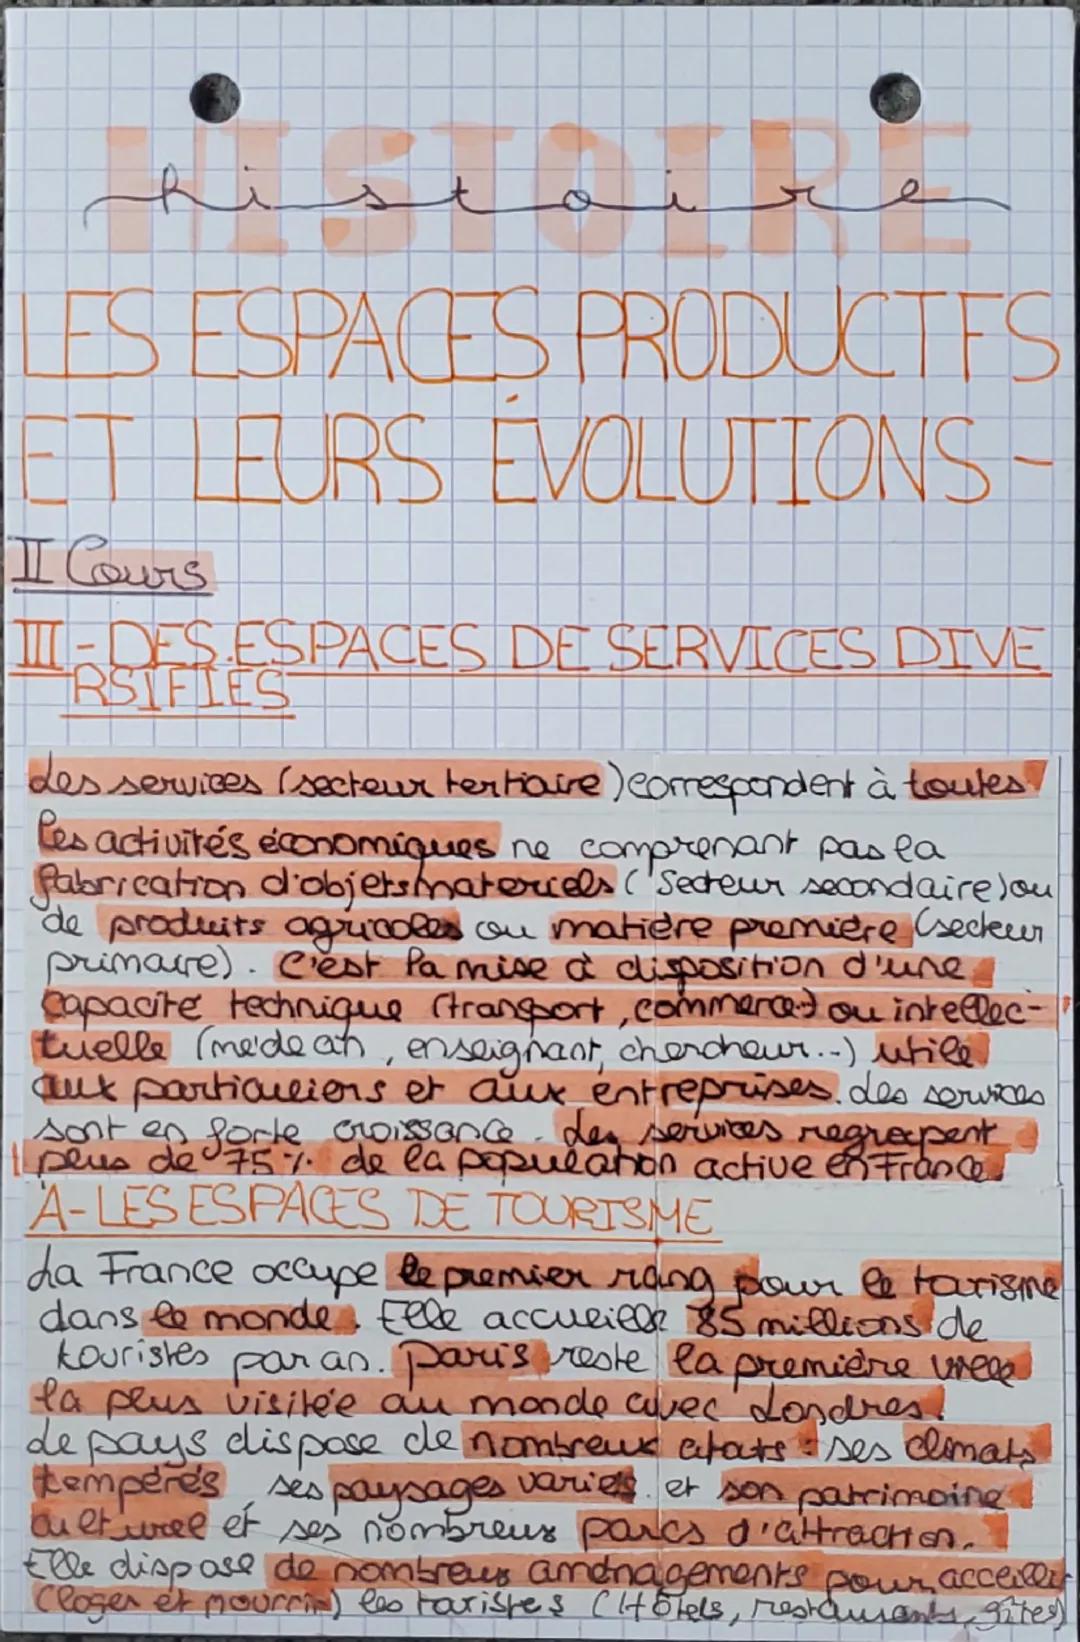 HISTOIRE
histoire
LES ESPACES PRODUCTIFS
ET LEURS ÉVOLUTIONS -
II Cours
III - DES ESPACES DE SERVICES DIVE
RSIFIÉS
Les services (secteur tertiaire) correspondent à toutes
les activités économiques ne comprenant pas la
fabrication d'objets materiels (Secteur secondaire) ou
de produits agricoles ou matière première (secteur
primaire). C'est la mise à disposition d'une
capacité technique (transport, commerce..) ou intellec-
tuelle (médecin, enseignant, chercheur...) utile
aux particuliers et aux entreprises. Les services
sont en forte croissance. Les services regroupent
plus de 75 % de la population active en France.
A- LES ESPACES DE TOURISME
La France occupe le premier rang pour le tourisme
dans le monde. Elle accueille 85 millions de
touristes par an. Paris reste la première ville
la plus visitée au monde avec Londres.
Le pays dispose de nombreux atouts : ses climats
tempérés, ses paysages variés et son patrimoine
culturel et ses nombreux parcs d'attraction.
Elle dispose de nombreux aménagements pour accueillir
(loger et nourrir) les touristes (Hôtels, restaurants, gîtes)